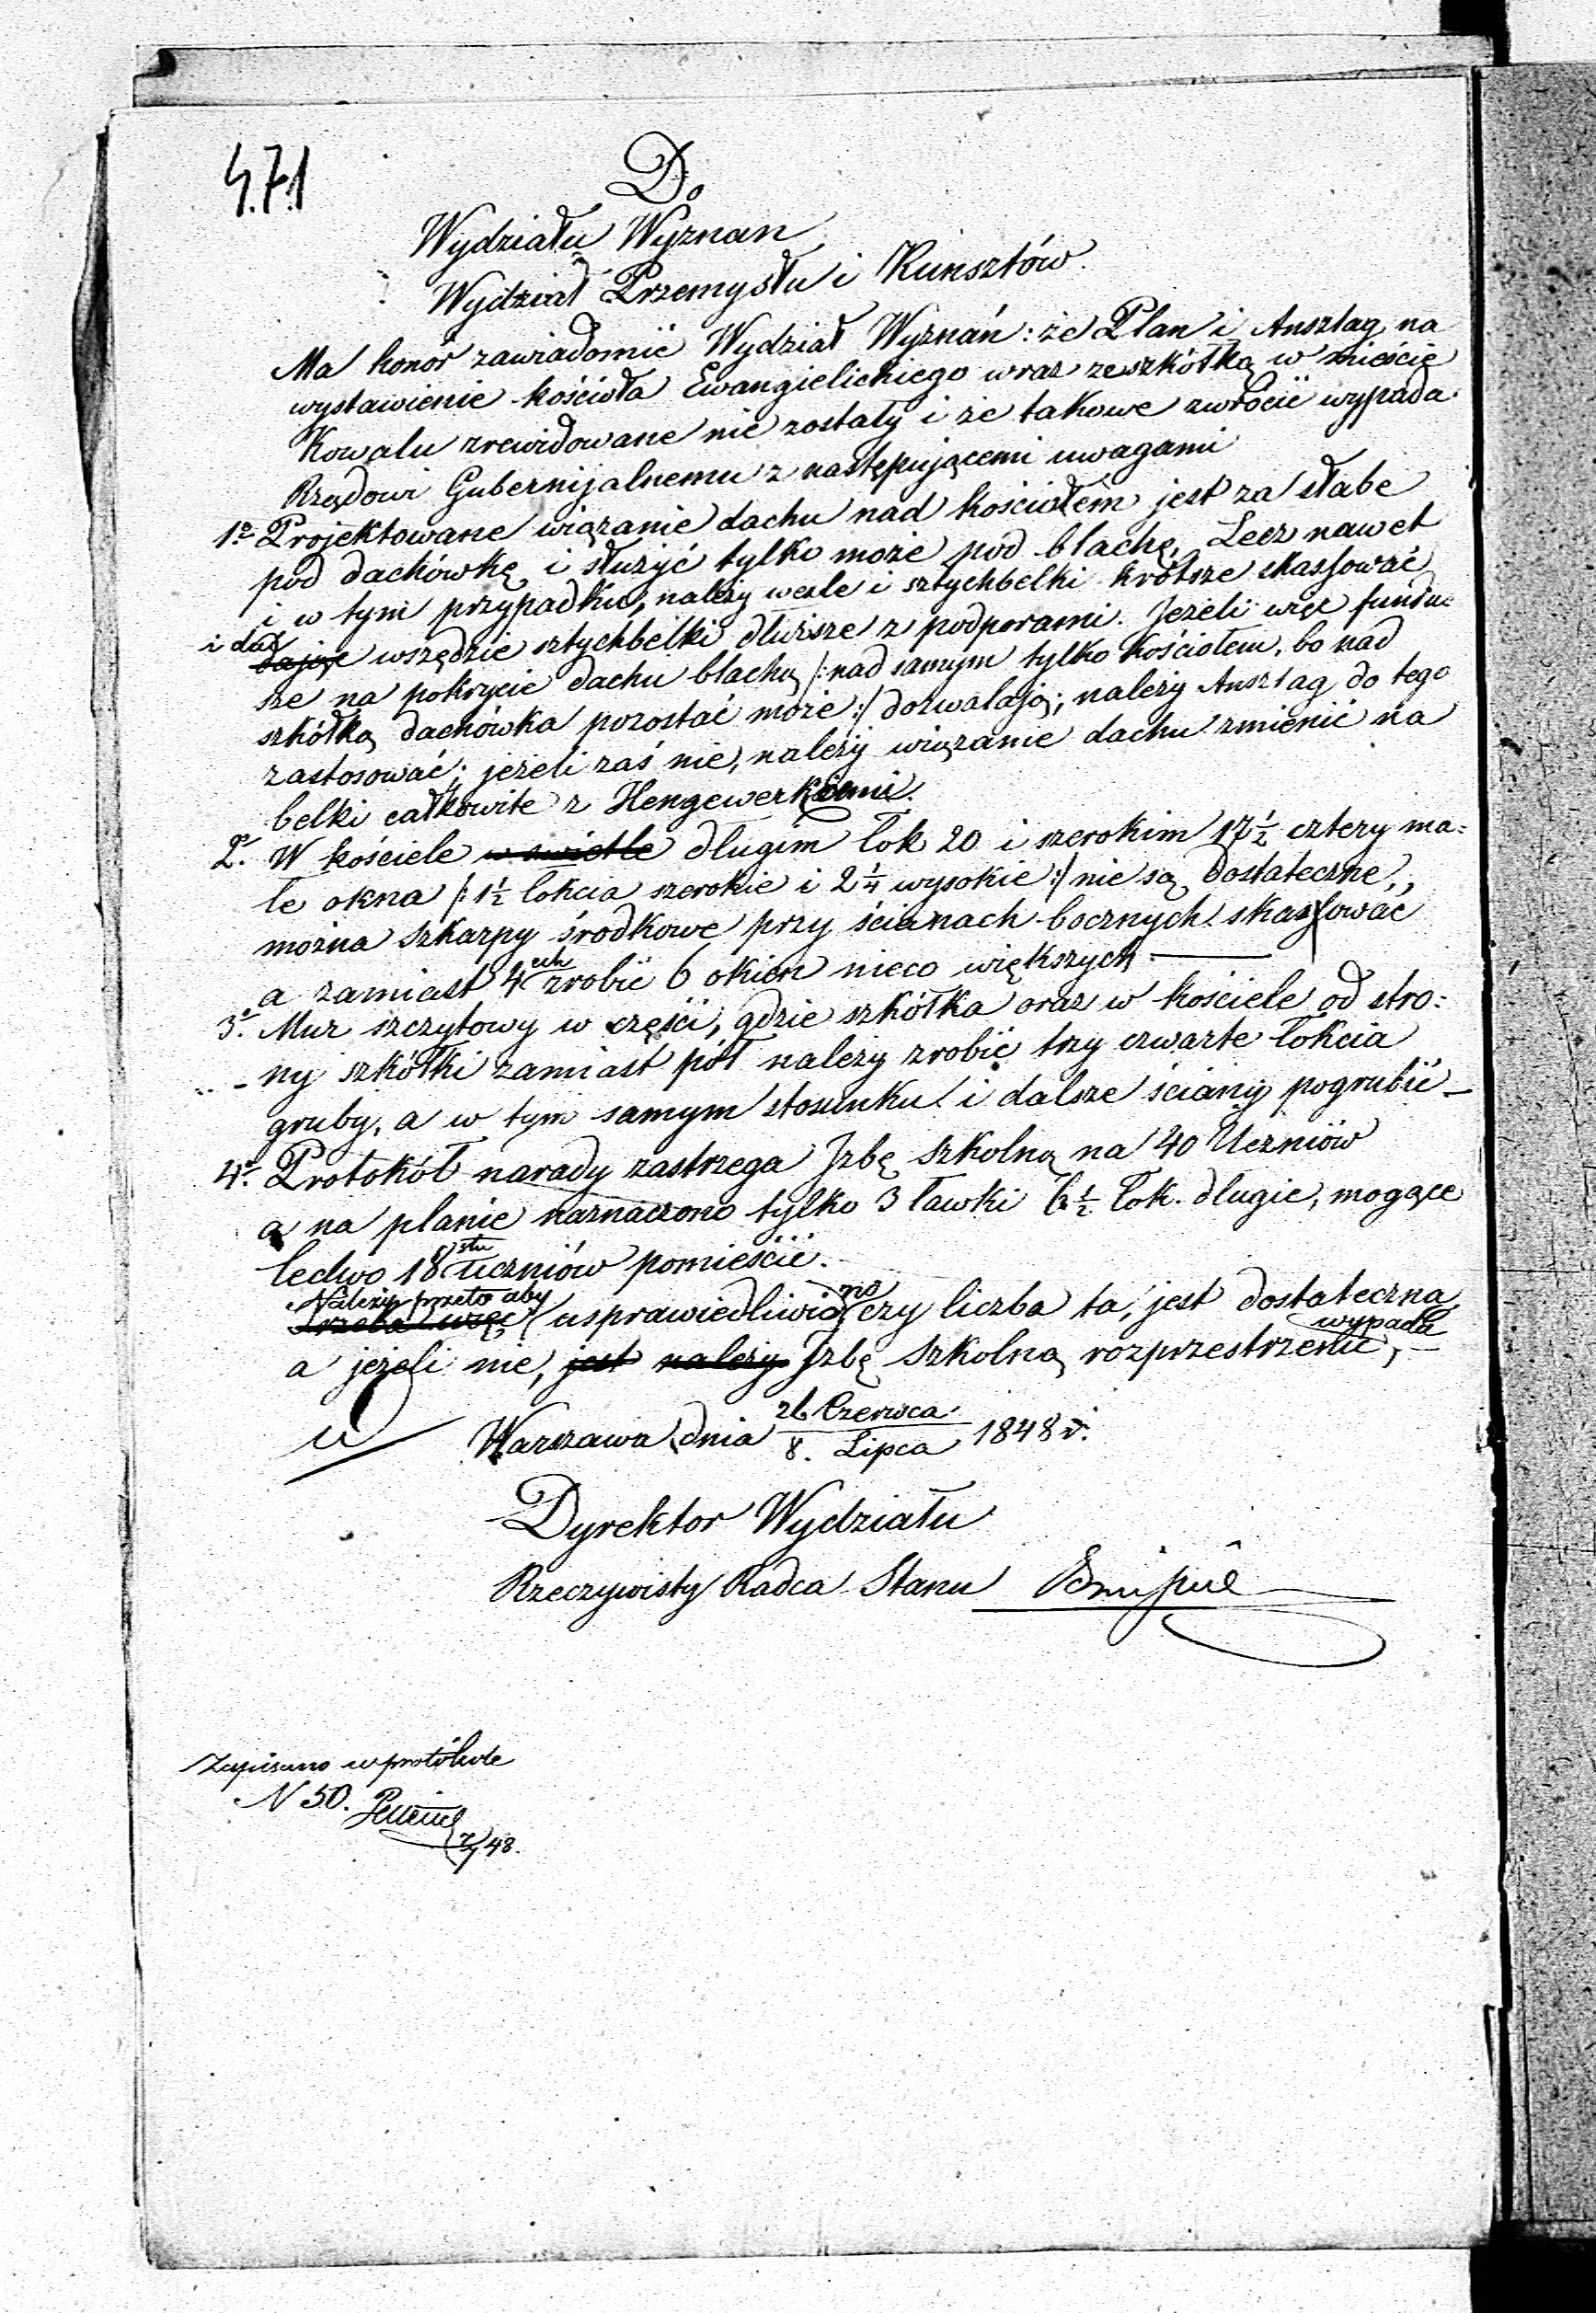 471
Do
Wydziału Wyznan
Wydział Przemysłu i Kunsztów.
Ma honor zawiadomić Wydział Wyznań: że Plan i Anszlag na
wystawienie kościoła Ewangielickiego wraz ze szkółką w mieście
Kowalu zrewidowane nie zostały i że takowe zwrócić wypada
Rządowi Gubernijalnemu z następującemi uwagami
1o Projektowane wiązanie dachu nad kościołem jest za słabe
pod dachówkę i służyć tylko może pod blachę, Lecz nawet
i w tym przypadku, należy wexle i sztychbelki krótsze skassować
i dać
dając wszędzie sztychbelki dłuższe z podporami. Jeżeli więc fundu
sze na pokrycie dachu blachą /: nad samym tylko kościołem, bo nad
szkółką dachówka pozostać może :/ dozwalają; należy Anszlag do tego
zastosować; jeżeli zaś nie, należy wiązanie dachu zmienić na
belki całkowite z Hengewerkami.
2o. W kościele w swietle długim łok 20 i szerokim 17 1/2 cztery ma=
łe okna /: 1 1/2 łokcia szerokie i 2 1/4 wysokie :/ nie są dostateczne,
można szkarpy środkowe przy ścianach bocznych skassować
a zamiast 4ech zrobić 6 okien nieco większych —
3o. Mur szczytowy w części, gdzie szkółka oraz w kościele od stro=
ny szkółki zamiast pół należy zrobić trzy czwarte łokcia
gruby, a w tym samym stosunku i dalsze ściany pogrubić —
4o. Protokół narady zastrzega Izbę szkolną na 40 Uczniów
a na planie naznaczono tylko 3 ławki 6 1/2 łok. długie, mogące
ledwo 18stu uczniów pomieścić.
Należy przeto aby no
Trzeba więc usprawiedliwio czy liczba ta, jest dostateczna
wypada
a jeżeli nie, jest należy Izbę szkolną rozprzestrzenić, —
Warszawa dnia 26 Czerwca / 8. Lipca 1848 r.
Dyrektor Wydziału
Rzeczywisty Radca Stanu
Zapisano w protókole
N 50.
48.